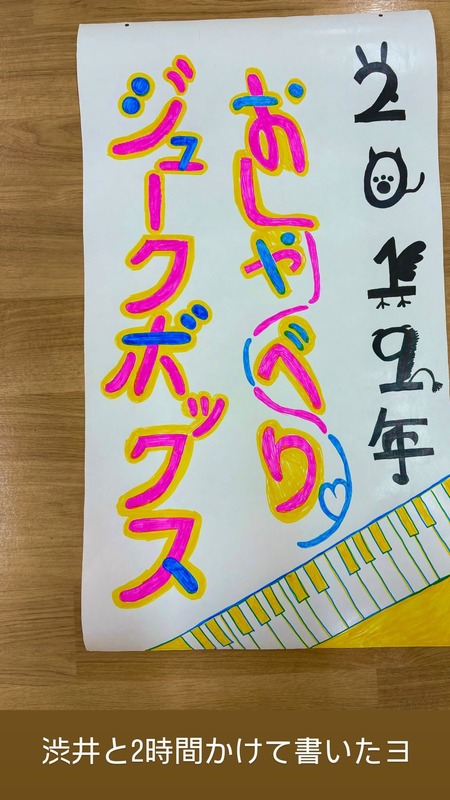 2019年
おしゃべり
ジュークボックス
渋井と2時間かけて書いたヨ